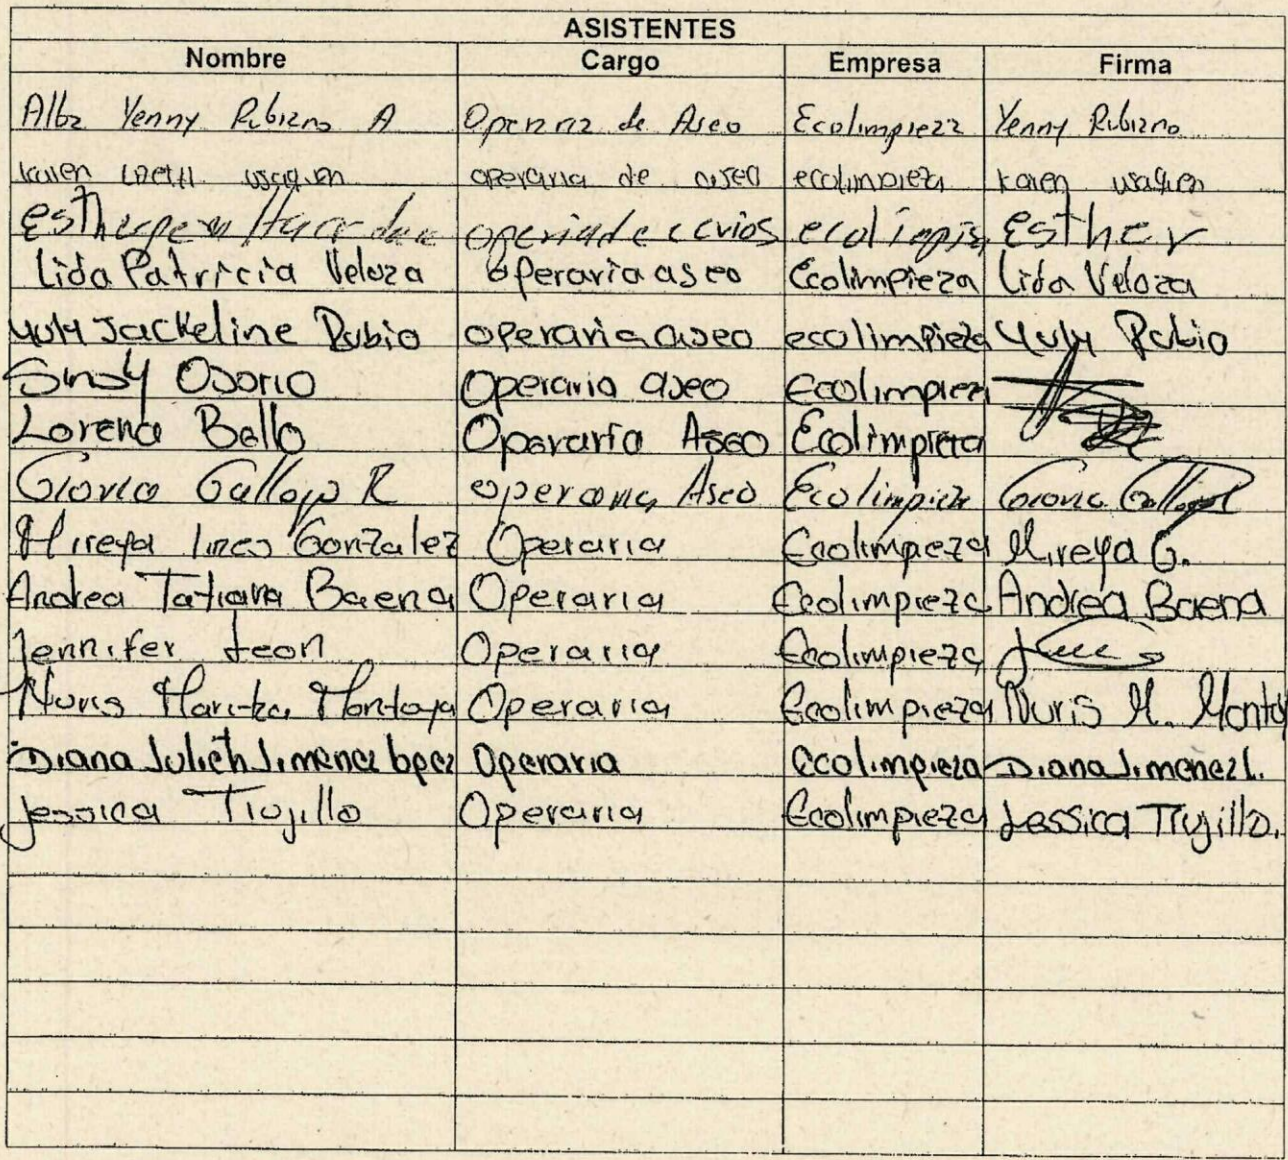 ASISTENTES
Nombre Cargo Empresa Firma
Alba Yenny Rubiano A Operaria de Aseo Ecolimpieza Yenny Rubiano
karen usaquen operaria de aseo ecolimpieza karen usaquen
Esther esther
Lida Patricia Veloza operaria aseo Ecolimpieza Lida Veloza
Yuly Jackeline Rubio operaria aseo ecolimpieza Yuly Rubio
Sindy Osorio Operaria aseo Ecolimpieza
Lorena Bello Operaria Aseo Ecolimpieza
Gloria Gallego R operaria Aseo Ecolimpieza Gloria Gallego R
Mireya Ines Gonzalez Operaria Ecolimpieza Mireya G.
Andrea Tatiana Baena Operaria Ecolimpieza Andrea Baena
Jennifer Leon Operaria Ecolimpieza
Nuris Maritza Montoya Operaria Ecolimpieza Nuris M. Montoy
Diana Julieth Jimenez Lopez Operaria Ecolimpieza Diana Jimenez L.
Jessica Trujillo Operaria Ecolimpieza Jessica Trujillo.